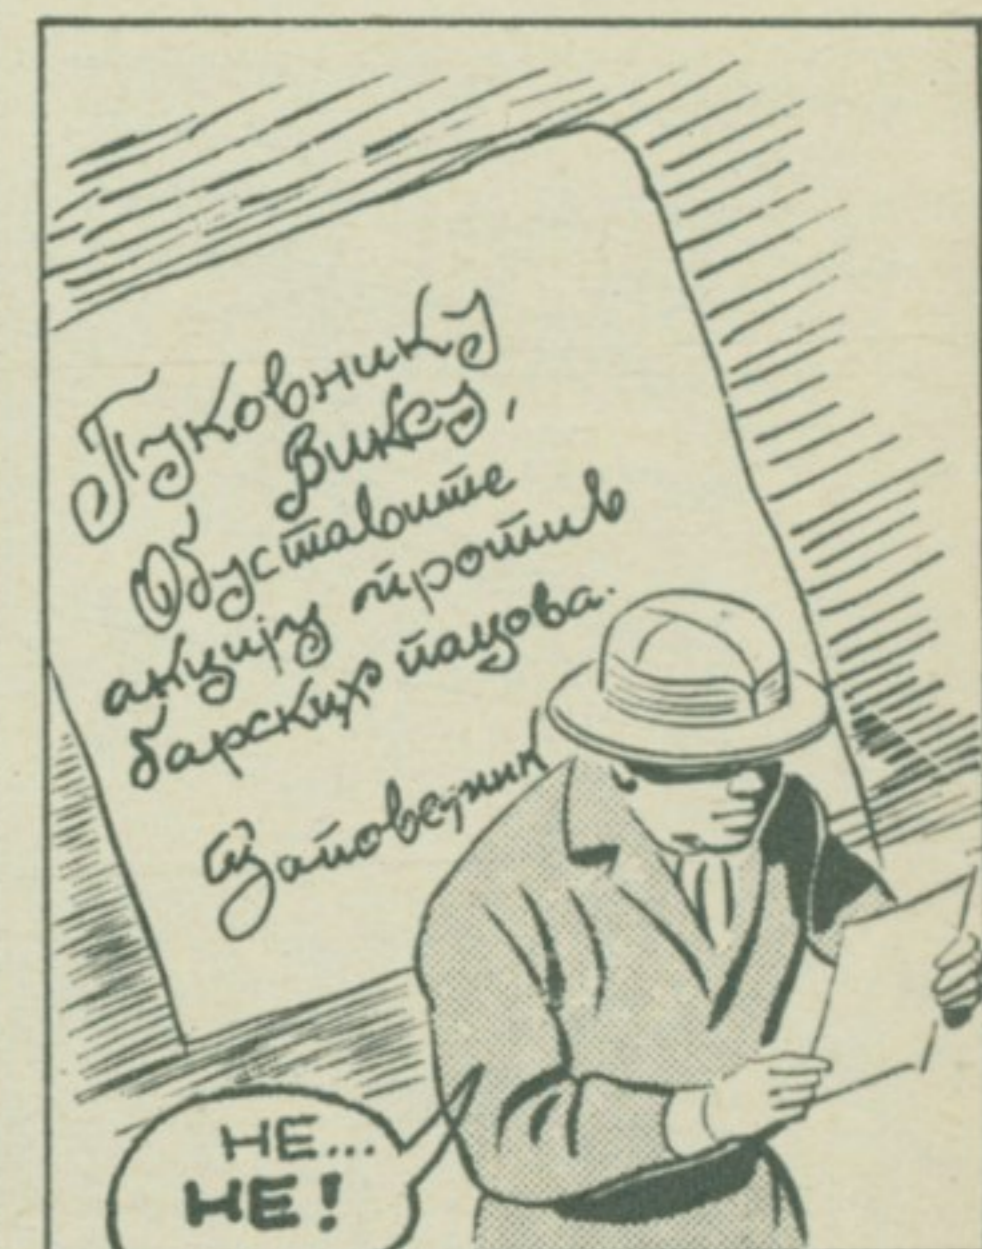 Пуковнику
Виксу,
Обуставите
акцију против
барских пацова.
Заповедник
НЕ...
НЕ!